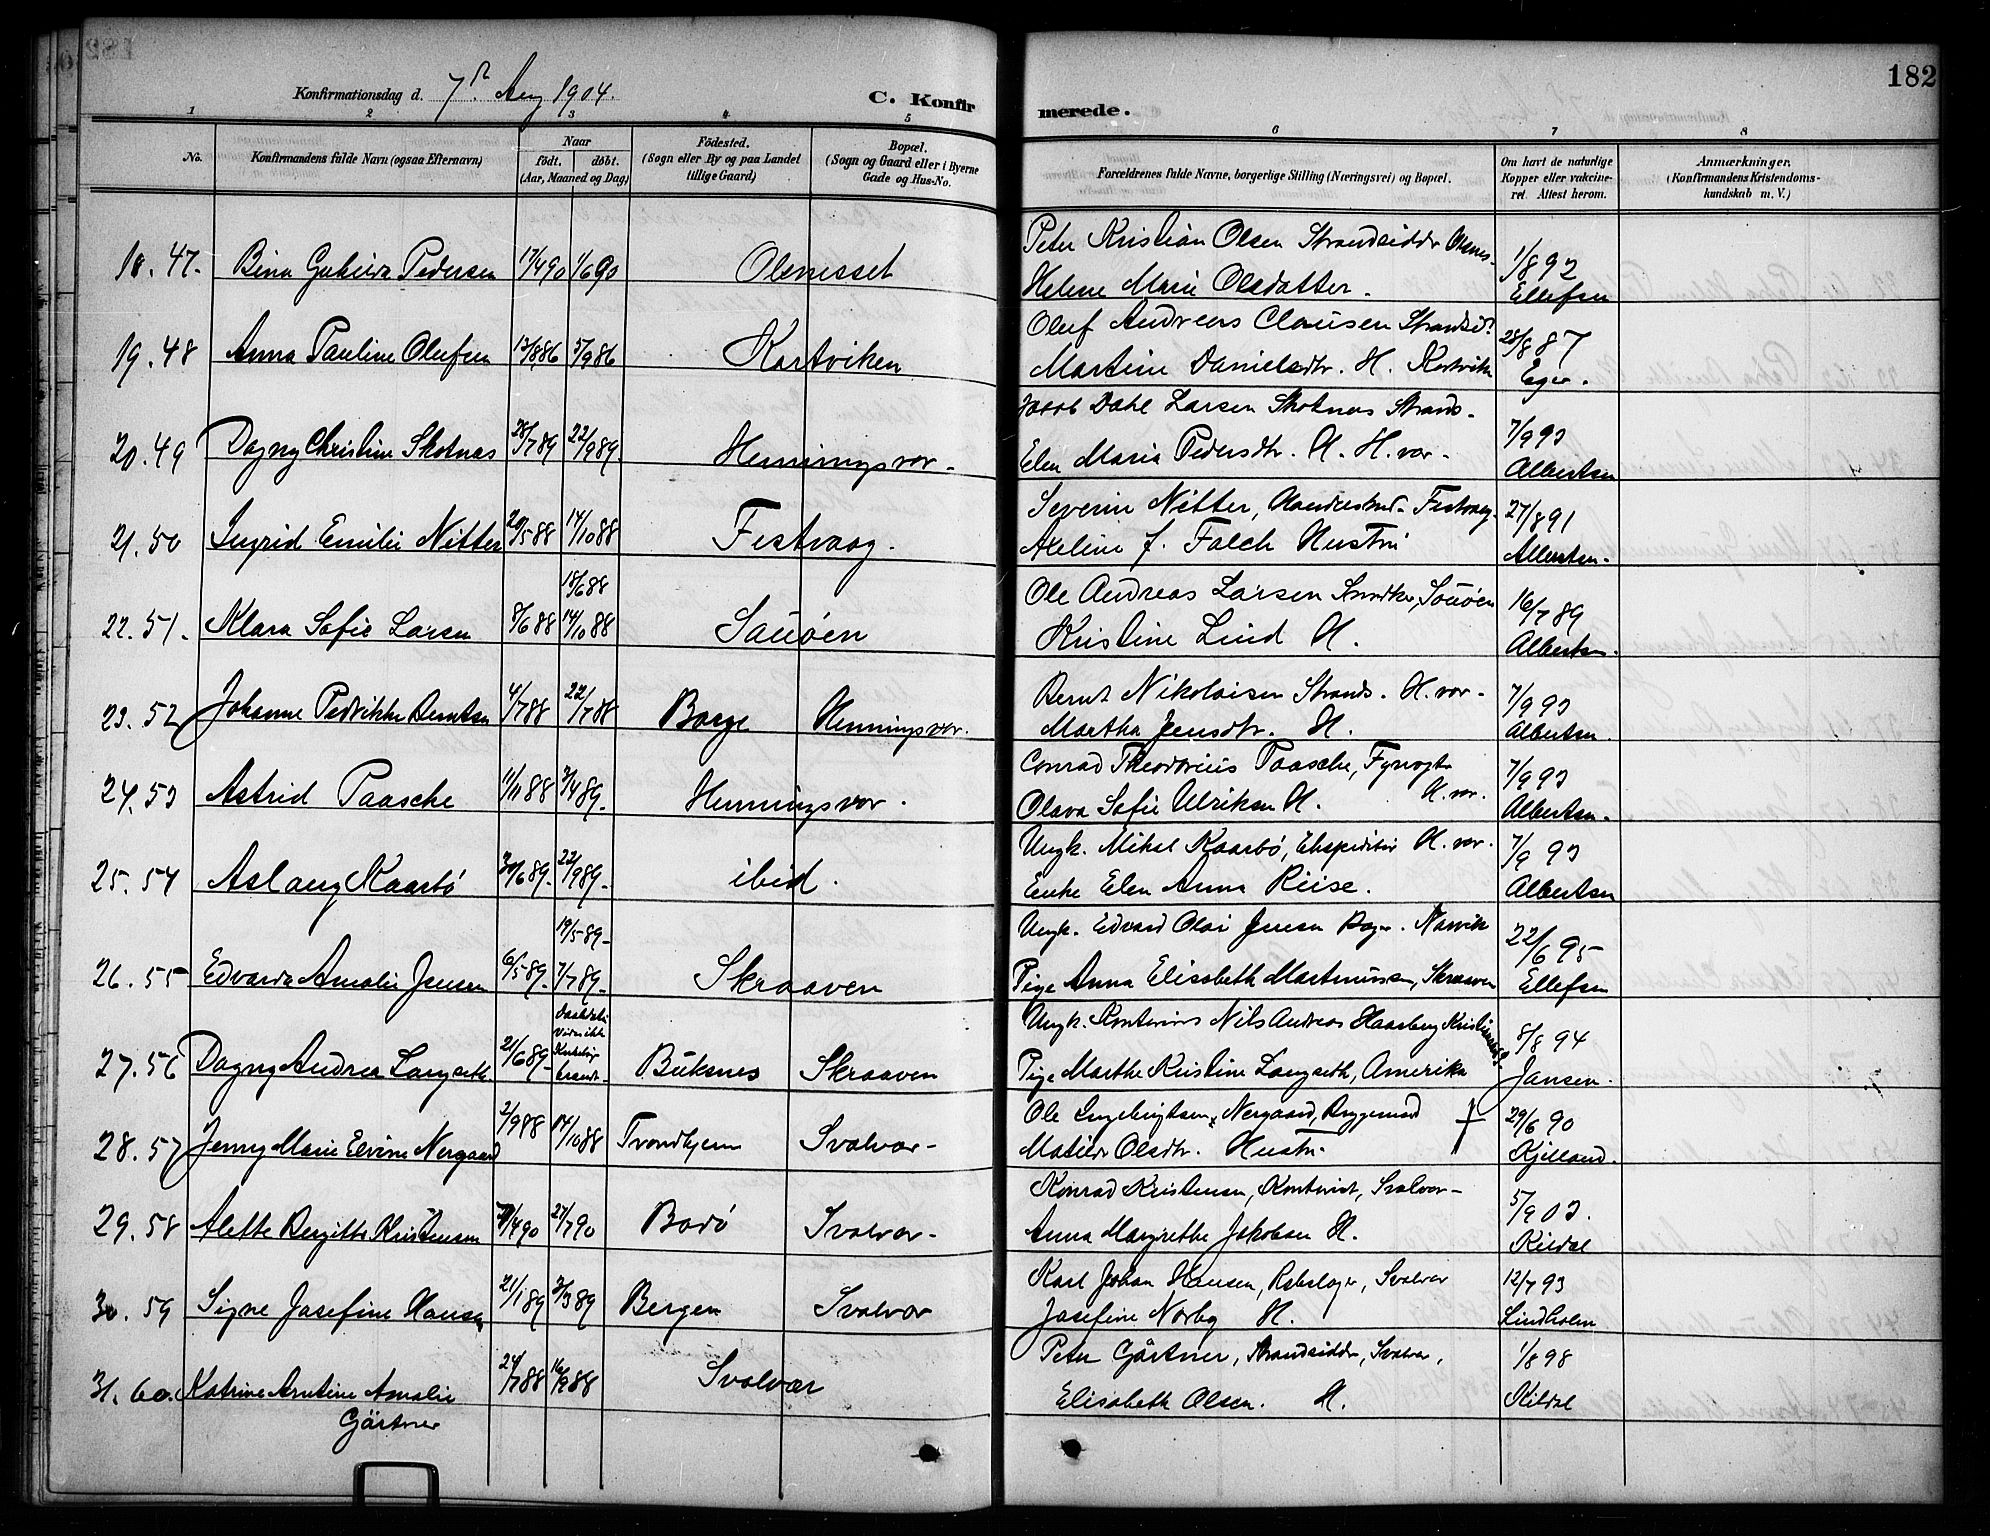 Konfirmationsdag d. 7de Aug 1904.
C. Konfirmerede.
182
1 2 3 4 5 6 7 8
No.
Konfirmandens fulde Navn (ogsaa Efternavn)
Naar
født. døbt.
(Aar, Maaned og Dag)
Fødested.
(Sogn eller By og paa Landet
tillige Gaard)
Bopæl.
(Sogn og Gaard eller i Byerne
Gade og Hus-No.
Forældrenes fulde Navne, borgerlige Stilling (Næringsvei) og Bopæl.
Om havt de naturlige
Kopper eller vakcine-
ret. Attest herom.
Anmærkninger.
(Konfirmandens Kristendoms-
kundskab m. V.)
Peter Kristian Olsen Strandsidder Olsnes-
18. 47. Bina Pedersen 17/4 90 1/6 90 Olsnesset 1/8 92
Helene Marie Olsdatter. Ellefsen
Oluf Andreas Clausen Strandsid.
19. 48 Anna Pauline Olufsen 13/8 86 5/9 86 Kartviken 28/8 87
Martine Danielsdtr. H. Kartvik Eger.
Jacob Dahl Larsen Skotnes Strands.
20. 49 Dagny Christine Skotnes 28/7 89 22/9 89. Henningsvær. 7/9 93
Elen Maria Pedersdtr. H. H.vær. Albertsen
Severin Nitter, Handelsbud. Festvaag.
21. 50 Ingrid Emilie Nitter 20/5 88 14/10 88 Festvaag. 27/8 91
Axeline f. Falch Hustru Albertsen.
15/6 88
Ole Andreas Larsen Snedker, Sauøen
22. 51. Klara Sofie Larsen 8/6 88 14/10 88 Sauøen 16/7 89
Kristine Lind H. Albertsen.
Bernt Nikolaisen Strands. H.vær.
23. 52 Johanne Pedrikke Berntsen 4/7 88 22/7 88 Borge Henningsvær. 7/9 93
Martha Jensdtr. H. Albertsen.
Conrad Theodorius Paasche, Fyrvogter
24. 53 Astrid Paasche 11/11 88 3/4 89. Henningsvær. 7/9 93
Olava Sofie Ulriksen H. H.vær. Albertsen.
Ungk. Mikal Kaarbø, Ekspeditør H.vær.
25. 54 Aslaug Kaarbø 30/6 89. 22/9 89. ibid. 7/9 93
Enke Elen Anna Riise. Albertsen
19/5 89.
Ungk. Edvard Olai Jensen Bager. Narvik
26. 55 Edvarda Amalie Jensen 6/5 89. 7/7 89. Skraaven 22/6 95
Pige Anna Elisabeth Martinussen, Skraaven Ellefsen
Ungk. Kontorist Nils Andreas Haarberg Kristiansund?
27. 56 Dagny Andrea Langseth 21/6 89. Buksnes Skraaven 8/8 94
Pige Marthe Kristine Langseth, Amerika Jansen.
Ole Ingebrigtsen Nergaard, Byggmand †
28. 57 Jenny Marie Elvine Nergaard 2/9 88 14/10 88 Trondhjem Svolvær. 29/6 90
Matilde Olsdtr. Hustru. Kjelland.
Konrad Kristensen, Kontorist, Svolvær.
29. 58 Alette Bergitte Kristensen 4 90 27/7 90 Bodø Svolvær. 5/9 03.
Anna Margrethe Jakobsen H. Kildal
Karl Johan Hansen, Rebslager, Svolvær
30. 59 Signe Josefine Hansen 21/1 89 3/3 89 Bergen Svolvær 12/7 93
Josefine Norby H. Lindholm
Peter Gärtner, Strandsidder, Svolvær,
31. 60. Katrine Arntine Amalie 24/7 88 16/9 88 Svolvær 1/8 98
Gärtner
Elisabeth Olsen. H. Kildal